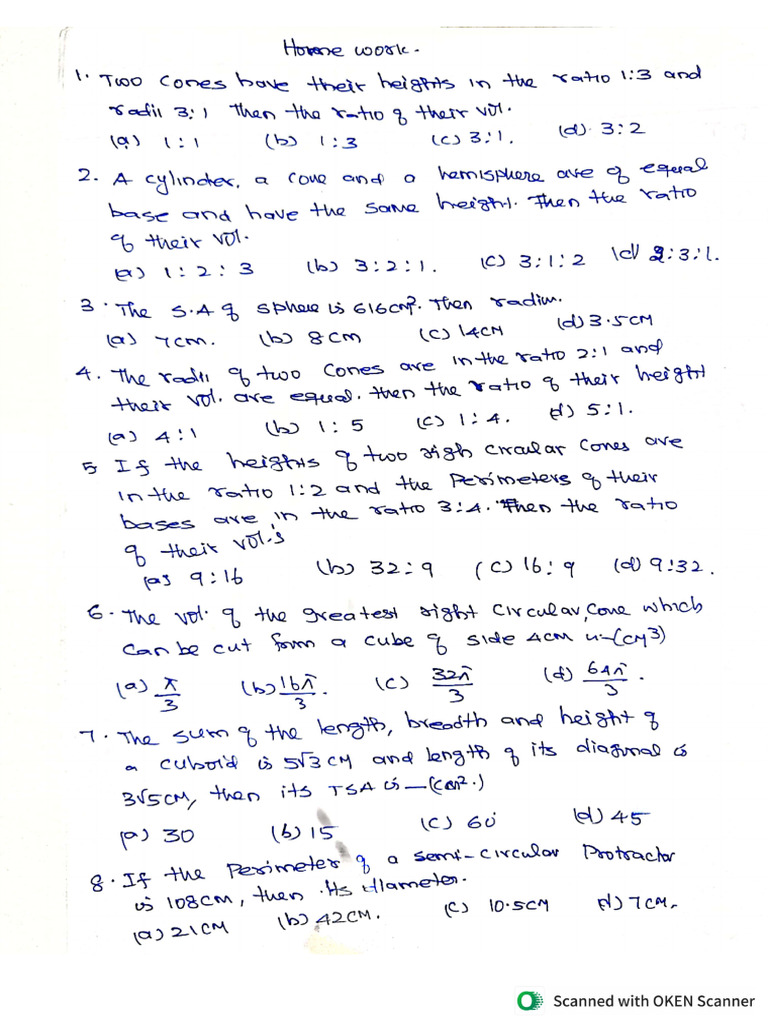 Home work.
1. Two cones have their heights in the ratio 1:3 and
radii 3:1 Then the ratio of their vol.
(a) 1:1 (b) 1:3 (c) 3:1. (d) 3:2
2. A cylinder, a cone and a hemisphere are of equal
base and have the same height. Then the ratio
of their vol.
(a) 1:2:3 (b) 3:2:1. (c) 3:1:2 (d) 2:3:1.
3. The S.A of sphere is 616cm². Then radius.
(a) 7cm. (b) 8cm (c) 14cm (d) 3.5cm
4. The radii of two cones are in the ratio 2:1 and
their vol. are equal. then the ratio of their height
(a) 4:1 (b) 1:5 (c) 1:4. (d) 5:1.
5 If the heights of two righ circular cones are
in the ratio 1:2 and the perimeters of their
bases are in the ratio 3:4. Then the ratio
of their vol.s
(a) 9:16 (b) 32:9 (c) 16:9 (d) 9:32.
6. The vol. of the greatest right circular, cone which
can be cut form a cube of side 4cm is-(cm³)
(a) π/3 (b) 16π/3. (c) 32π/3 (d) 64π/3.
7. The sum of the length, breadth and height of
a cuboid is 5√3cm and length of its diagonal is
3√5cm, then its TSA is—(cm².)
(a) 30 (b) 15 (c) 60 (d) 45
8. If the perimeter of a semi-circular Protractor
is 108cm, then its diameter.
(a) 21cm (b) 42cm. (c) 10.5cm (d) 7cm.
Scanned with OKEN Scanner